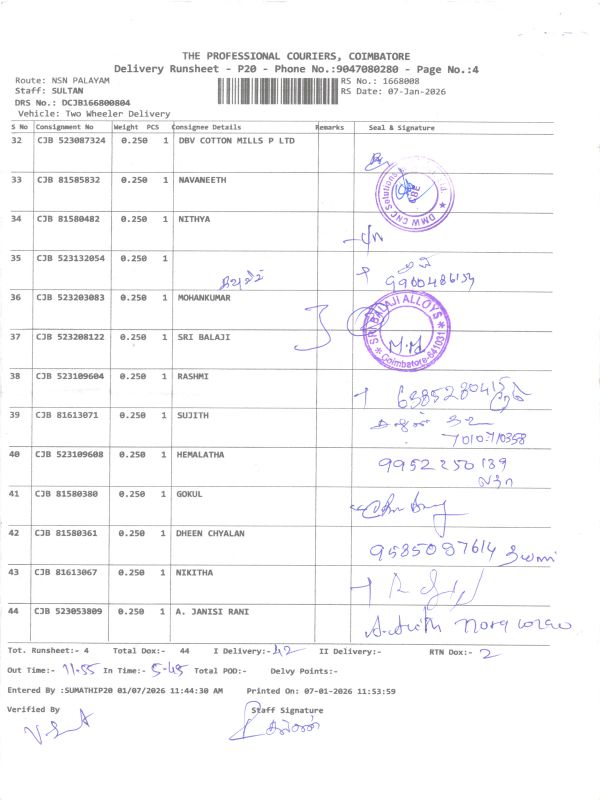 THE PROFESSIONAL COURIERS, COIMBATORE
Delivery Runsheet - P20 - Phone No.:9047080280 - Page No.:4
Route: NSN PALAYAM RS No.: 1668008
Staff: SULTAN RS Date: 07-Jan-2026
DRS No.: DCJB166800804
Vehicle: Two Wheeler Delivery
S No Consignment No Weight PCS Consignee Details Remarks Seal & Signature
32 CJB 523087324 0.250 1 DBV COTTON MILLS P LTD
33 CJB 81585832 0.250 1 NAVANEETH
DMW CNC Solutions
CBE
34 CJB 81580482 0.250 1 NITHYA
35 CJB 523132054 0.250 1
36 CJB 523203083 0.250 1 MOHANKUMAR
SRI BALAJI ALLOYS
Coimbatore-641031
37 CJB 523208122 0.250 1 SRI BALAJI
38 CJB 523109604 0.250 1 RASHMI
6385280415
39 CJB 81613071 0.250 1 SUJITH
7010710358
40 CJB 523109608 0.250 1 HEMALATHA 9952250139
41 CJB 81580380 0.250 1 GOKUL
42 CJB 81580361 0.250 1 DHEEN CHYALAN
9585087614
43 CJB 81613067 0.250 1 NIKITHA
44 CJB 523053809 0.250 1 A. JANISI RANI
Tot. Runsheet:- 4 Total Dox:- 44 I Delivery:- 42 II Delivery:- RTN Dox:- 2
Out Time:- 11.55 In Time:- 5-45 Total POD:- Delvy Points:-
Entered By :SUMATHIP20 01/07/2026 11:44:30 AM Printed On: 07-01-2026 11:53:59
Verified By Staff Signature